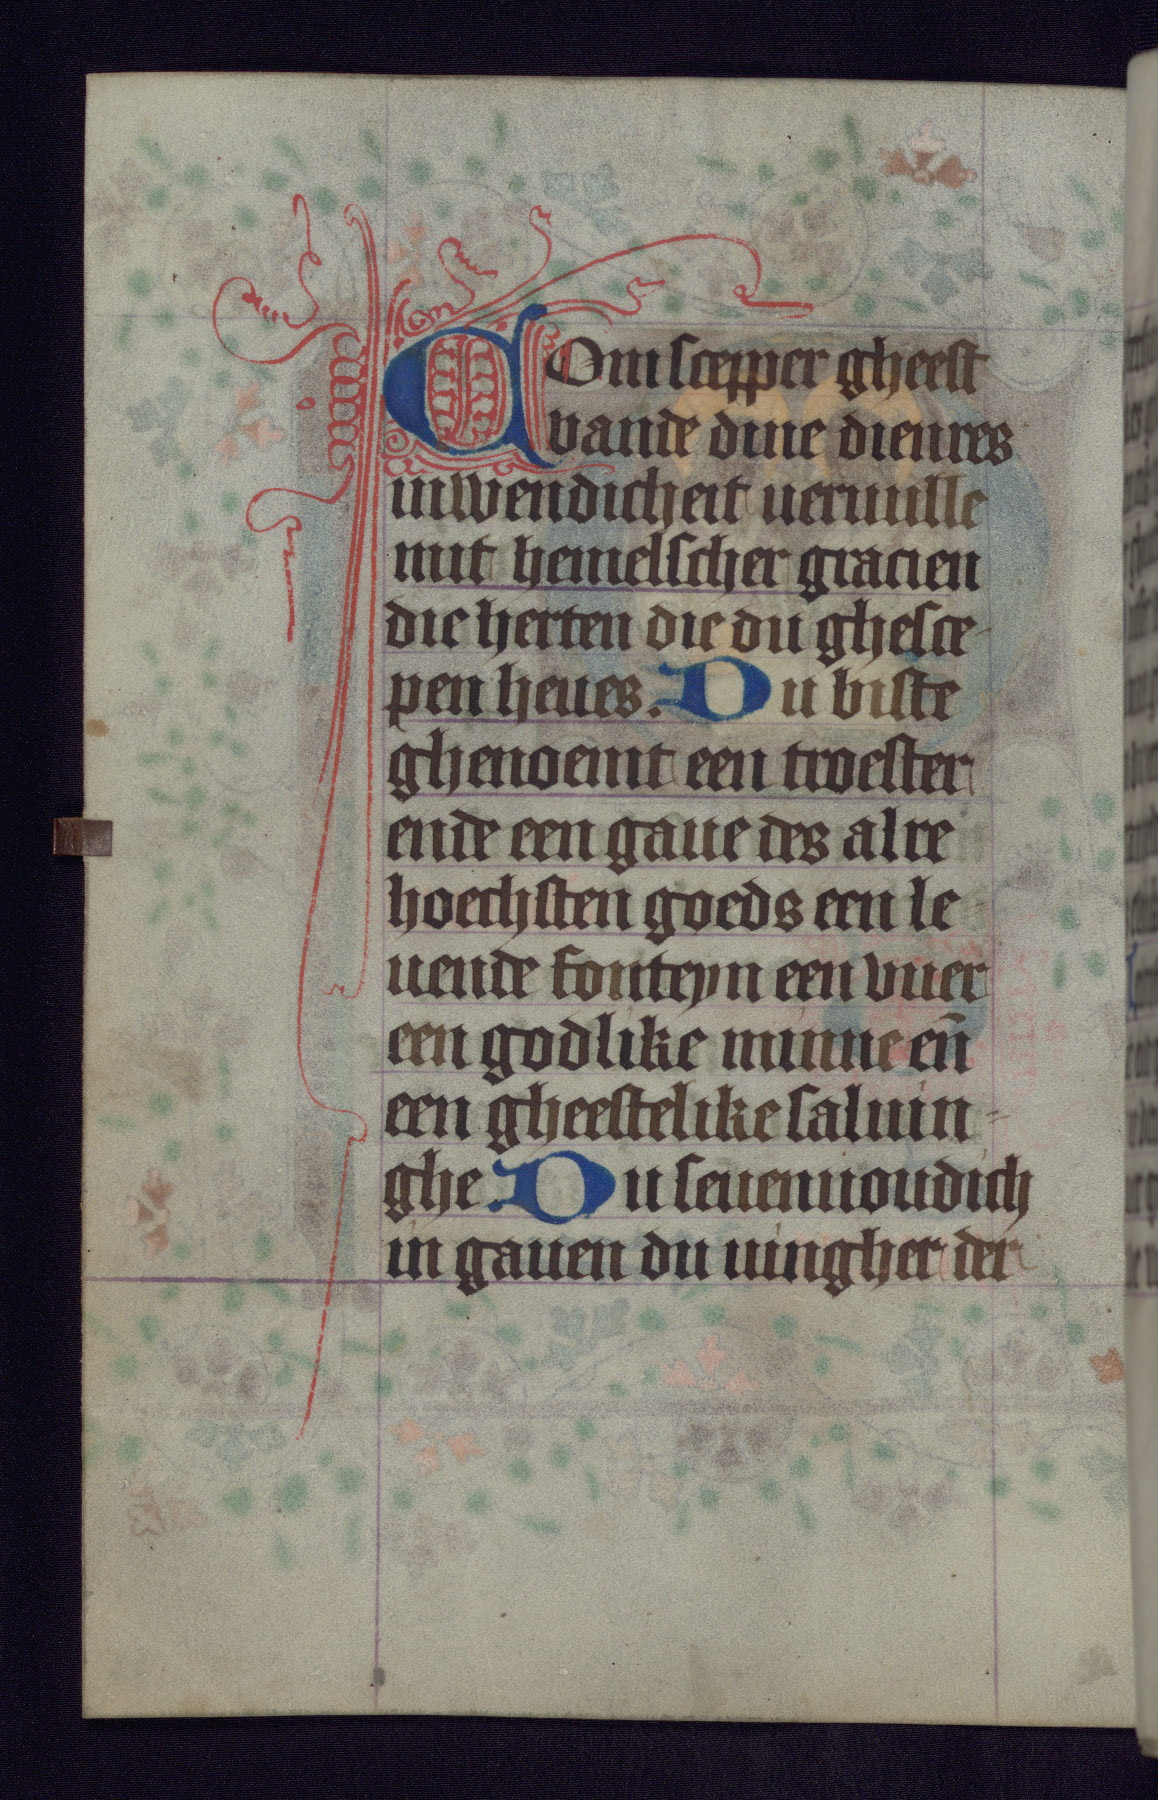 Com scepper gheest
vande dine dienres
inwendicheit ueruulle
mit hemelscher gracien
die herten die du ghesce-
pen heues. Du biste
ghenoemt een troester
ende een gaue des alre
hoechsten goeds een le
uende fonteyn een vuer
een godlike minne en̄
een gheestelike saluin-
ghe. Du seuenuoudich
in gauen du uingher der